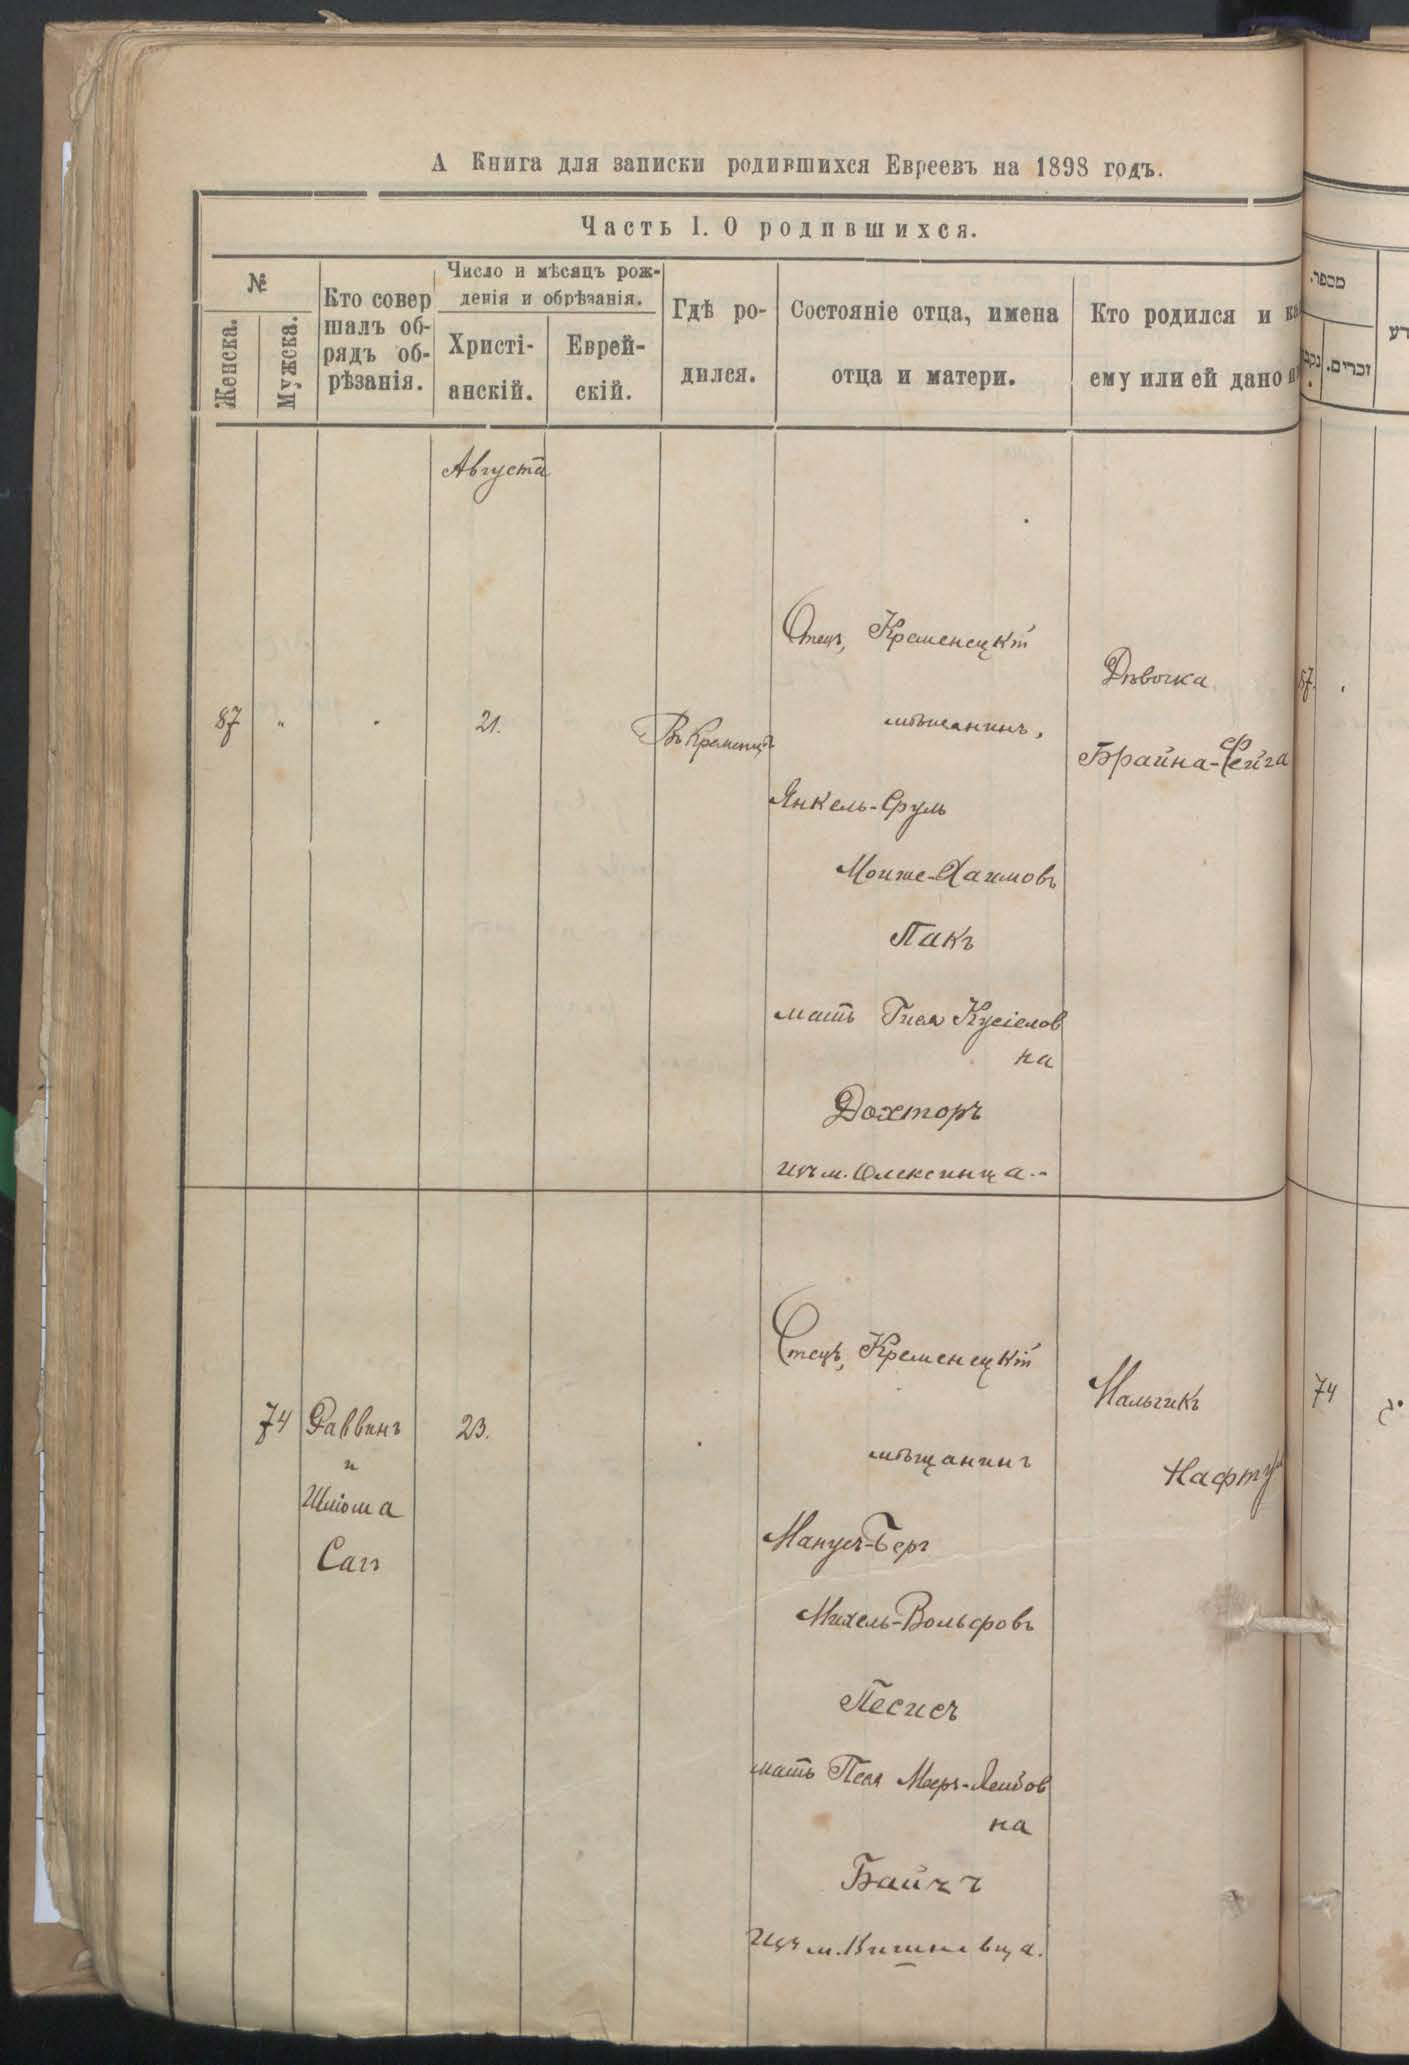 А Книга для записки родившихся Евреевъ на 1898 годъ.
Часть I. О родившихся.
№
Женска.
Мужска.
Кто совер
шалъ об-
рядъ об-
рѣзанія.
Число и мѣсяцъ рож-
денія и обрѣзанія.
Христі-
анскій.
Еврей-
скій.
Гдѣ ро-
дился.
Состояніе отца, имена
отца и матери.
Кто родился и
ему или ей дано
מספר.
זכרים.
Августа
87
21.
Въ Кременцѣ
Отецъ, Кременецкій
мѣщанинъ,
Янкель-Сруль
Мошке-Хаимовъ
Пакъ
мать Гися Кусіелов
на
Дохторъ
изъ м. Олексинца.-
Дѣвочка
Брайна-Фейга
87.
74
Раввинъ
и
Шліома
Сагъ
23.
Отецъ, Кременецкій
мѣщанинъ
Манусъ-Беръ
Михель-Вольфовъ
Песисъ
мать Песя Меръ-Лейбов
на
Байчъ
изъ м. Вишневца.
Мальчикъ
Нафтул
74